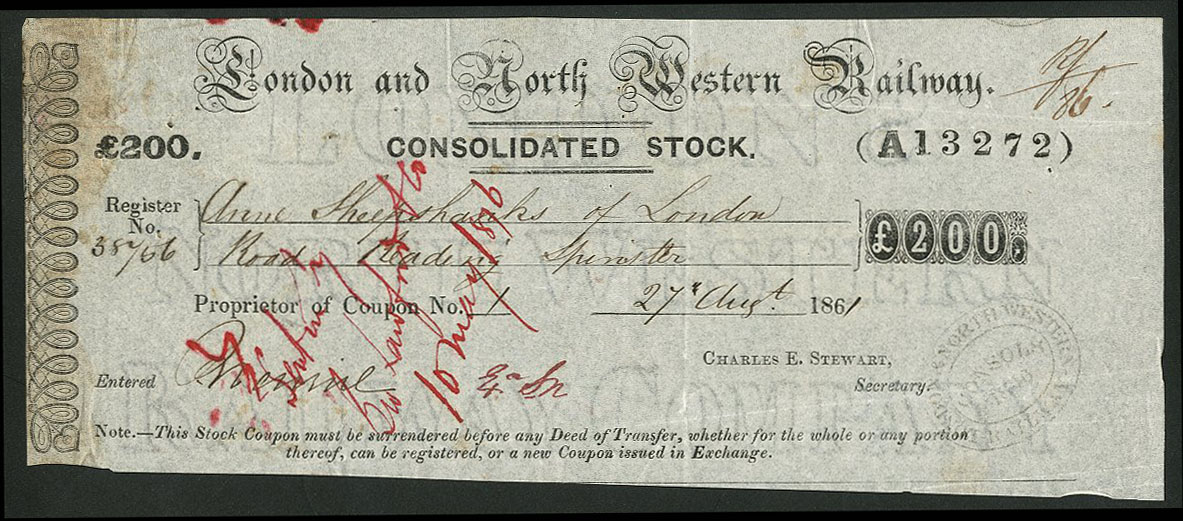 London and North Western Railway.
£200. CONSOLIDATED STOCK. (A13272)
Register No. 38766
Anne Sheepshanks of London
Road Reading Spinster
£200.
Proprietor of Coupon No. 1 27th Augt. 1861
CHARLES E. STEWART,
Entered Secretary.
10 May 1876
Note.—This Stock Coupon must be surrendered before any Deed of Transfer, whether for the whole or any portion
thereof, can be registered, or a new Coupon issued in Exchange.
NORTH WESTERN
CONSOLS